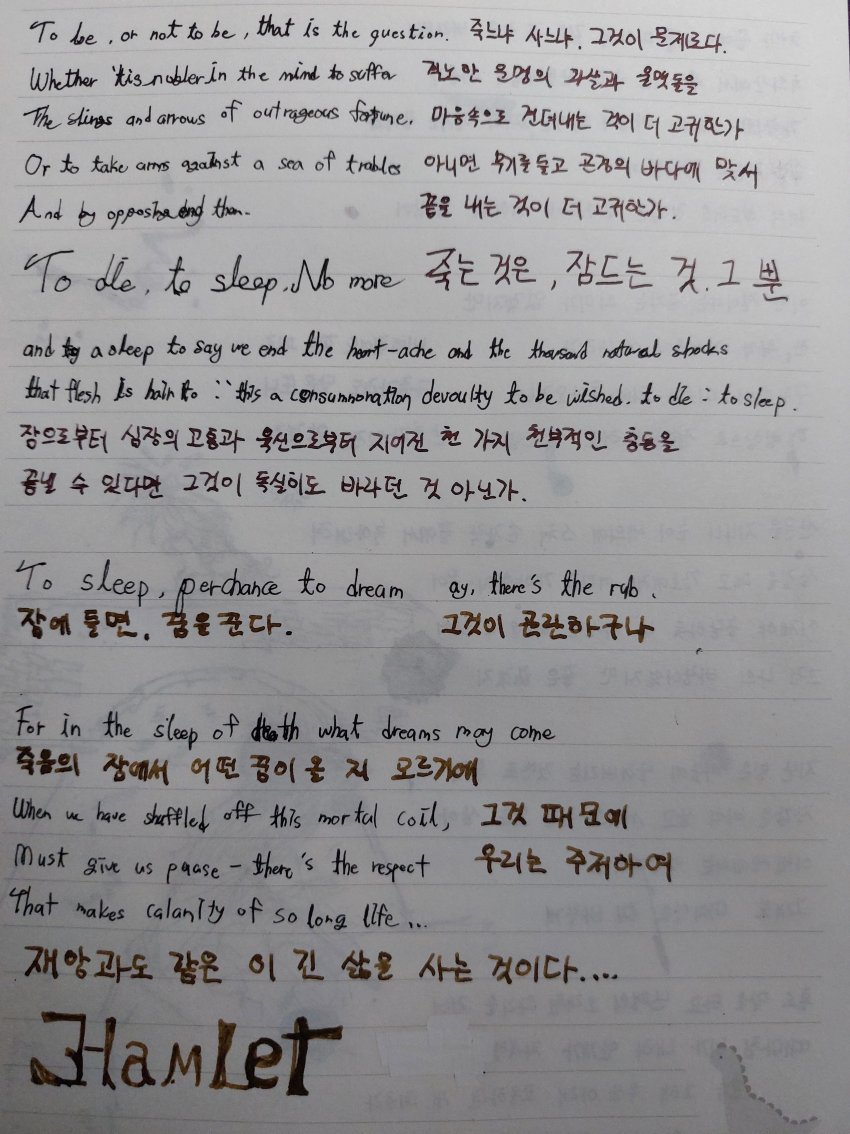 To be, or not to be, that is the question. 죽느냐 사느냐, 그것이 문제로다.
Whether 'tis nobler in the mind to suffer 격노한 운명의 화살과 돌맷돌을
The slings and arrows of outrageous fortune, 마음속으로 견뎌내는 것이 더 고귀한가
Or to take arms against a sea of trables 아니면 무기를 들고 곤경의 바다에 맞서
And by opposing end them. 끝을 내는 것이 더 고귀한가.
To die, to sleep, No more 죽는 것은, 잠드는 것. 그 뿐
and by a sleep to say we end the heart-ache and the thousand natural shocks
that flesh is hair to : 'this a consummoration devoultly to be wished. to die : to sleep.
잠으로부터 심장의 고통과 육신으로부터 지어진 천 가지 천부적인 충동을
끝낼 수 있다면 그것이 독실히도 바라던 것 아닌가.
To sleep, perchance to dream ay, there's the rub.
잠에 들면, 꿈을 꾼다. 그것이 곤란하구나
For in the sleep of death what dreams may come
죽음의 잠에서 어떤 꿈이 올 지 모르기에
When we have shuffled off this mortal coil, 그것 때문에
Must give us pause - there's the respect 우리는 주저하여
That makes calanity of so long life...
재앙과도 같은 이 긴 삶을 사는 것이다....
Hamlet